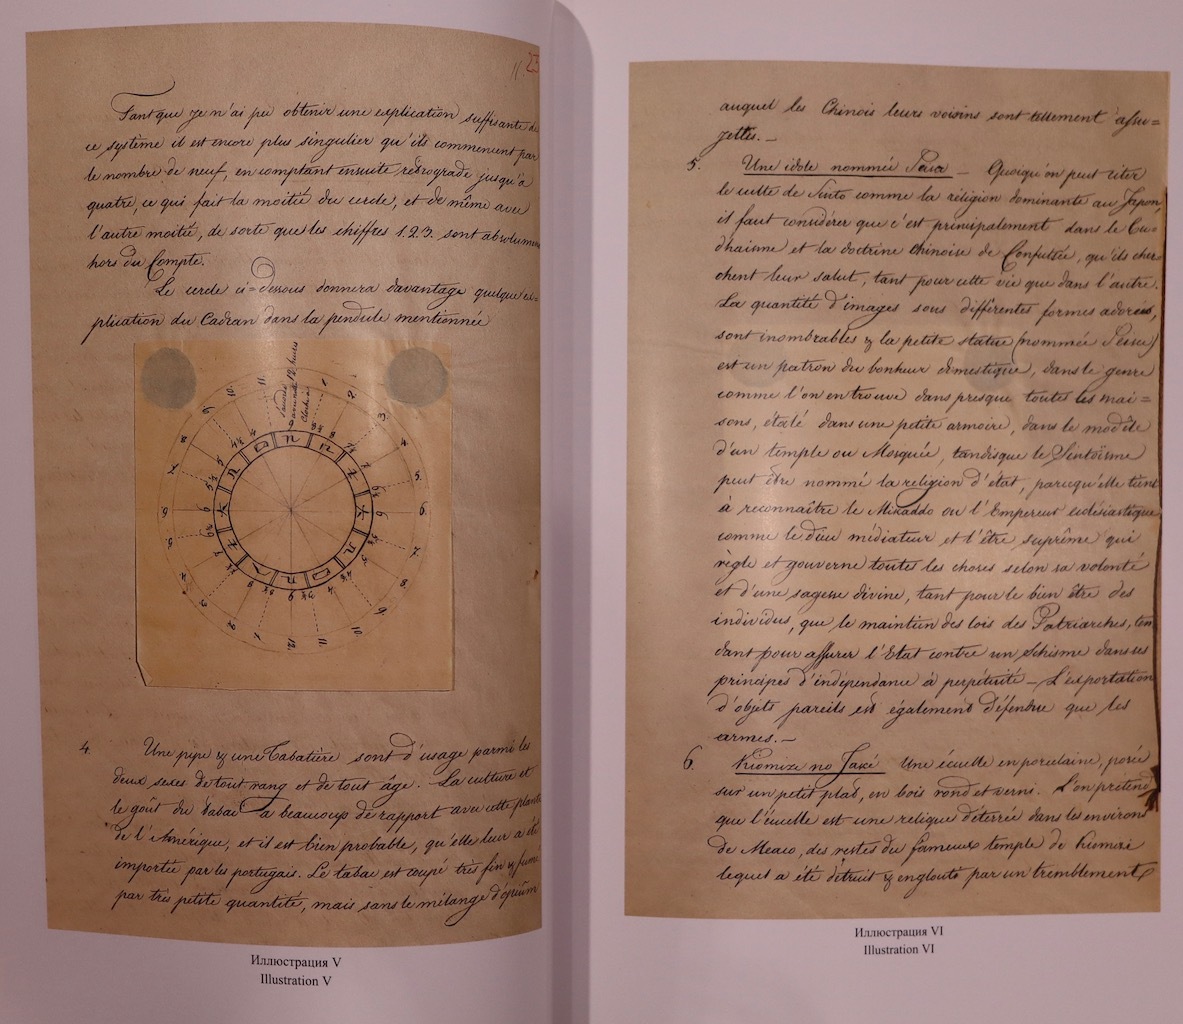 11 23
Tant que je n'ai peu obtenir une explication suffisante de
ce système il est encore plus singulier qu'ils commencent par
le nombre de neuf, en comptant ensuite, retrograde jusqu'à
quatre, ce qui fait la moitié du cercle, et de même avec
l'autre moitié, de sorte que les chiffres 1.2.3. sont absolument
hors du Compte.
Le cercle ci=dessous donnera davantage quelque ex-
plication du Cadran dans la pendule mentionnée
4. Une pipe & une Tabatière sont d'usage parmi les
deux sexes de tout rang et de tout âge. La culture et
le goût du tabac a beaucoup de rapport avec cette plante
de l'Amérique, et il est bien probable, qu'elle leur a été
importée par les portugais. Le tabac est coupé très fin & fumé
par très petite quantité, mais sans le mélange d'opium
Иллюстрация V
Illustration V
auquel les Chinois leurs voisins sont tellement assu=
jettes. —
5. Une idole nommée — Quoiqu'on peut citer
le culte de Sinto comme la religion dominante au Japon,
il faut considérer que c'est principalement dans le Bu-
dhaisme et la doctrine chinoise de Confutsée, qu'ils cher-
chent leur salut, tant pour cette vie que dans l'autre.
La quantité d'images sous différentes formes adorées,
sont inombrables & la petite statue (nommée
est un patron du bonheur domestique, dans le genre
comme l'on en trouve dans presque toutes les mai=
sons, étalé dans une petite armoire, dans le modèle
d'un temple ou Mosquée, tandisque le Sintoïsme
peut être nommé la religion d'état, parcequ'elle tient
à reconnaître le Mikaddo ou l'Empereur ecclésiastique
comme le dieu médiateur et l'être suprême qui
règle et gouverne toutes les choses selon sa volonté
et d'une sagesse divine, tant pour le bien être des
individus, que le maintien des lois des Patriarches, ten
dant pour assurer l'Etat contre un Schisme dans ses
principes d'indépendance à perpétuité — L'exportation
d'objets pareils est également défendue que les
armes. —
6. Kiomize no Jaké Une écuelle en porcelaine, posée
sur un petit plad, en bois rond et verni. L'on prétend
que l'écuelle est une relique déterrée dans les environs
de Meaco, des restes du fameux temple de Kiomizi
lequel a été détruit & englouti par un tremblement
Иллюстрация VI
Illustration VI